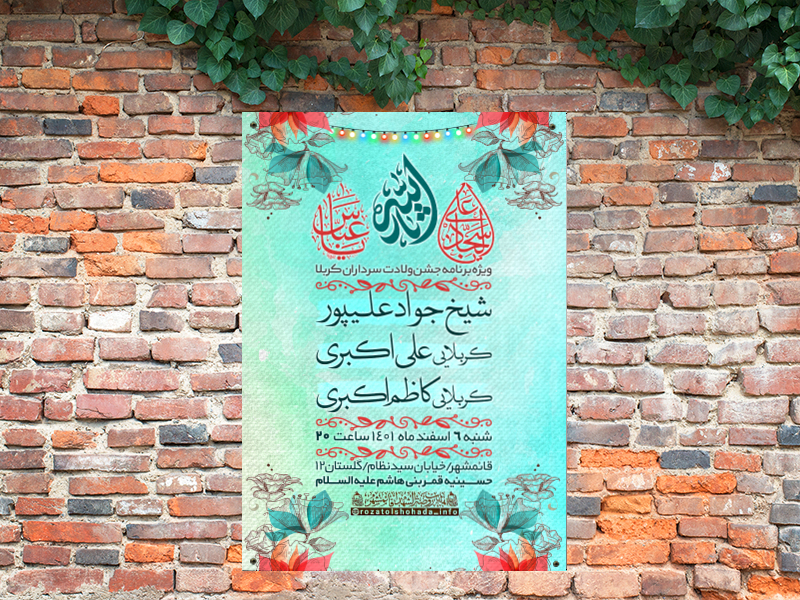 یا سجاد علی
یا ثارالله
یا عباس
ویژه برنامه جشن ولادت سرداران کربلا
شیخ جواد علیپور
کربلایی علی اکبری
کربلایی کاظم اکبری
شنبه ۶ اسفند ماه ۱۴۰۱ ساعت ۲۰
قائمشهر/خیابان سیدنظام/گلستان۱۲
حسینیه قمربنی هاشم علیه السلام
@rozatolshohada_info